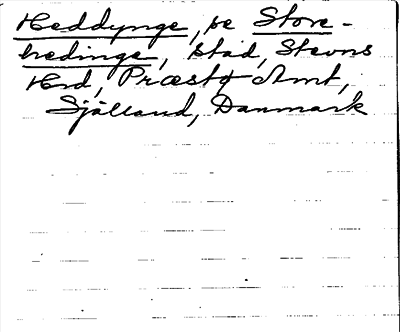 Heddynge, se Store-
hedinge, stad, Stevns
Hrd, Præstø Amt,
Själland, Danmark